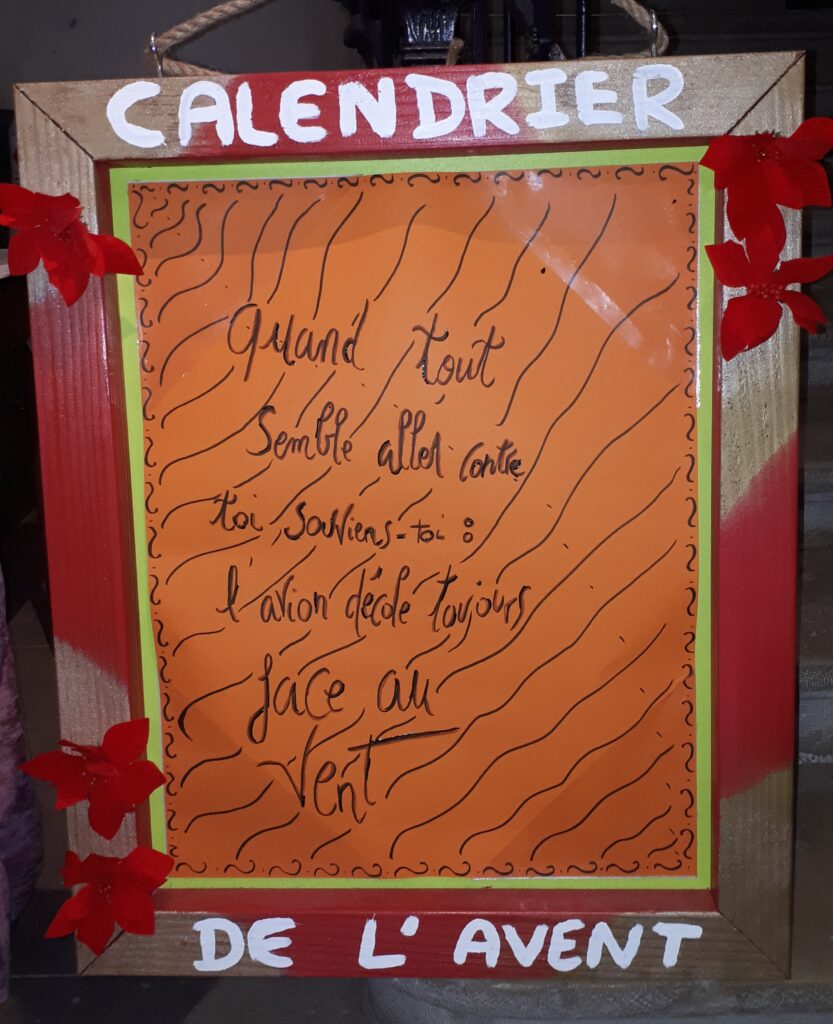 CALENDRIER
Quand tout
semble aller contre
toi souviens-toi :
l'avion décole toujours
face au
vent
DE L'AVENT